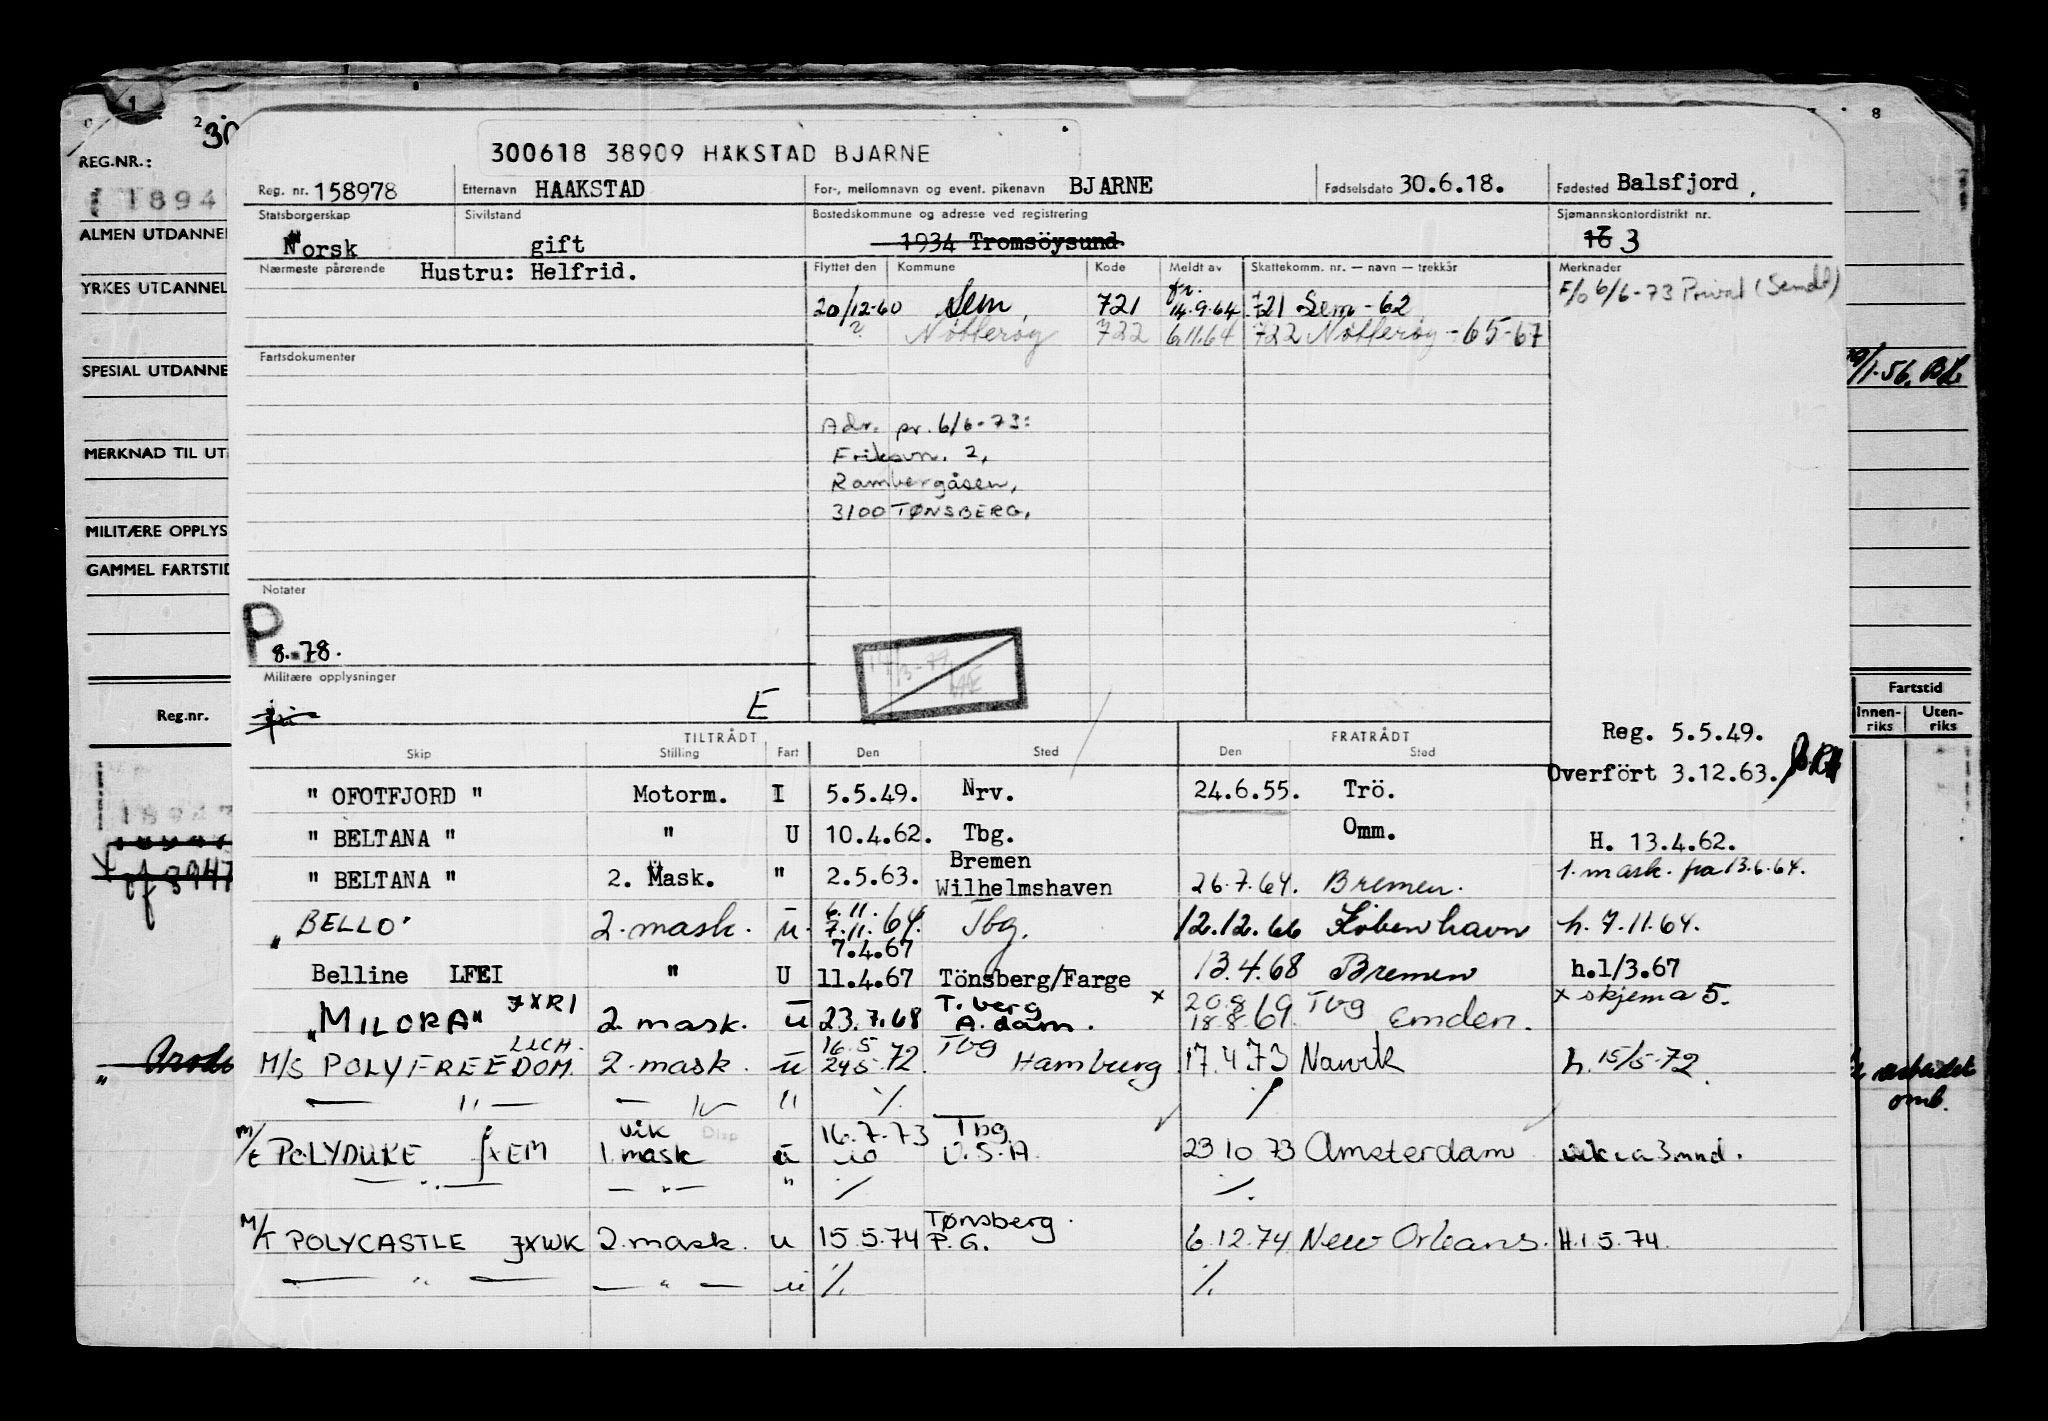 300618 38909 HÅKSTAD BJARNE
Reg. nr. 158978 Etternavn HAAKSTAD For-, mellomnavn og event. pikenavn BJARNE Fødselsdato 30.6.18. Fødested Balsfjord,
Statsborgerskap Sivilstand Bostedskommune og adresse ved registrering Sjømannskontordistrikt nr.
Norsk gift 1934 Tromsöysund 16 3
Nærmeste pårørende Hustru: Helfrid. Flyttet den Kommune Kode Meldt av Skattekomm. nr. — navn — trekkår Merknader
F/o 6/6-73 Privat (Sendt)
20/12-60 Sem, 721 fr. 14.9.64 721 Sem -62
? Nøtterøy 722 6.11.64 722 Nøtterøy -65-67
Fartsdokumenter
Adr. pr. 6/6-73:
Eriksvn. 2,
Rambergåsen,
3100 TØNSBERG.
Notater
P 8.-78.
Militære opplysninger
E
Reg. 5.5.49.
TILTRÅDT FRATRÅDT
Skip Stilling Fart Den Sted Den Sted
Overfört 3.12.63.
" OFOTFJORD " Motorm. I 5.5.49. Nrv. 24.6.55. Trö.
" BELTANA " " U 10.4.62. Tbg. Omm. H. 13.4.62.
" BELTANA " 2. Mask. " 2.5.63. Bremen
Wilhelmshaven 26.7.64. Bremen. 1. mask. fra 13.6.64.
"BELLO" 2. mask. u 6.11.
7.11. 64. Tbg. 12.12.66 København h. 7.11.64.
7.4.67
Belline LFEI " U 11.4.67 Tönsberg/Farge 13.4.68 Bremen h.1/3.67
"MILORA" JXRI 2. mask. u 23.7.68 T. berg
A. dam. x 20.8
18.8 69. Tbg Emden. x skjema 5.
M/S POLYFREEDOM. LICH. 2. mask. u 16.5
24.5 72. Tbg Hamburg 17.4.73 Narvik h. 15/5-72.
— " — — " — " ./. ./.
M/T POLYDUKE JXEM vik Disp
1. mask u 16.7.73 Tbg
U.S.A. 23.10.73 Amsterdam vik ca 3 mnd.
— " — — " — " ./. ./.
M/T POLYCASTLE JXWK 2. mask. u 15.5.74 Tønsberg.
P.G. 6.12.74 New Orleans. H.1.5.74.
— " — — " — u ./. ./.
1
2
30
8
REG.NR.:
1894
ALMEN UTDANNE
YRKES UTDANNEL
SPESIAL UTDANNE
MERKNAD TIL UT
MILITÆRE OPPLYS
GAMMEL FARTSTID
Reg.nr.
/1.56.
Fartstid
Innen-
riks
Uten-
riks
arbeidet
omb.